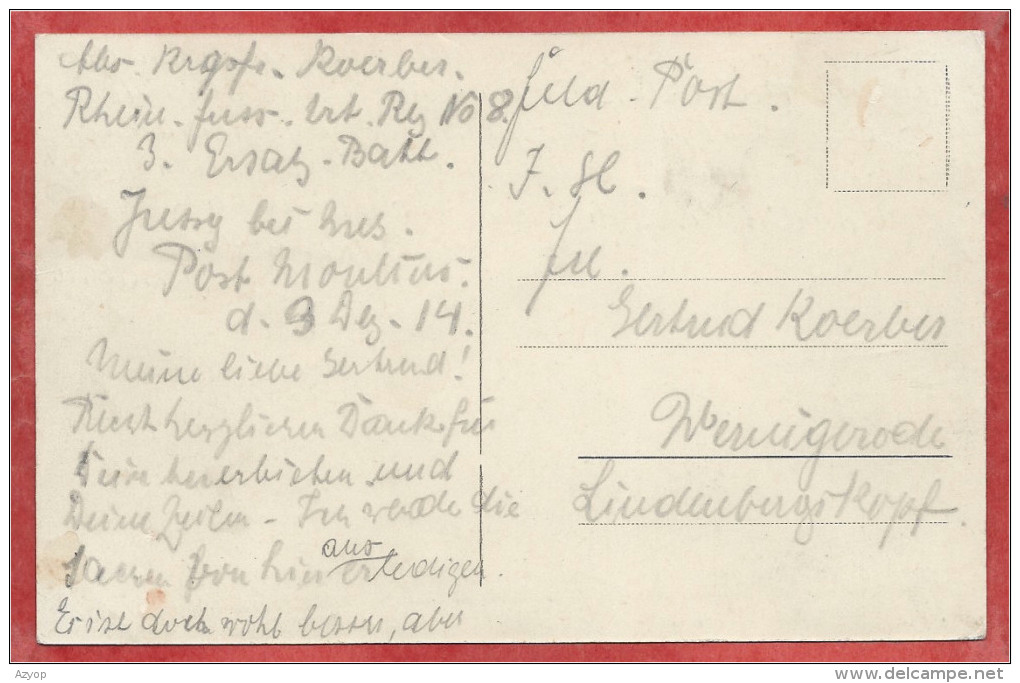 Abs. Krgsfr. Koerber.
Rhein. fuss. Art. Reg No 8.
3. Ersatz-Batt.
Jussy bei Metz.
Post Moulins.
d. 9 Dez. 14.
Meine liebe Gertrud!
Recht herzlichen Dank für
Dein Anerbieten und
Deine Zeilen - Ich werde die
Sachen von hier aus erledigen.
Es ist doch wohl besser, aber
Feld-Post.
F. H.
Frl.
Gertrud Koerber
Wernigerode
Lindenbergskopf.
Azyop